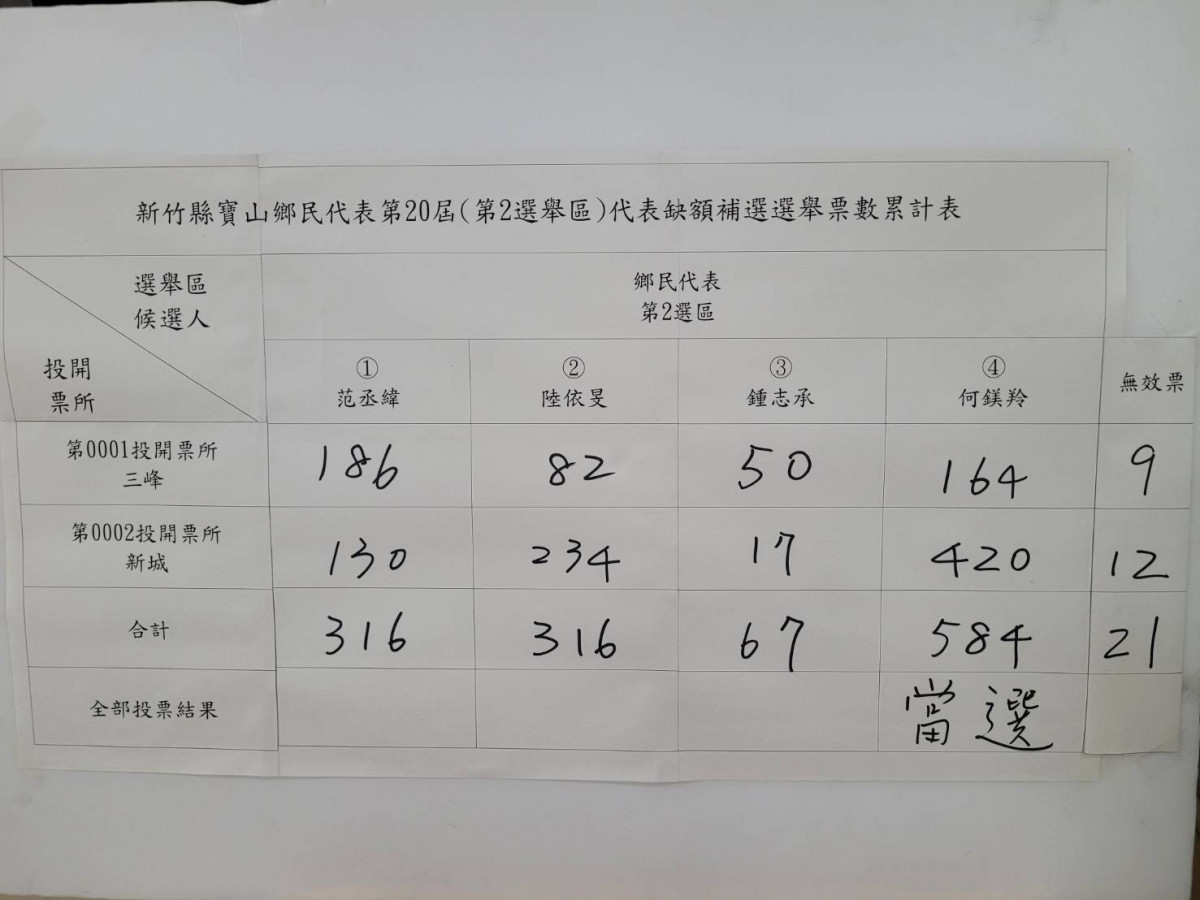 新竹縣寶山鄉民代表第20屆(第2選舉區)代表缺額補選選舉票數累計表
選舉區
候選人
投開
票所
鄉民代表
第2選區
① ② ③ ④
范丞緯 陸依旻 鍾志承 何鎂羚 無效票
第0001投開票所
三峰
186 82 50 164 9
第0002投開票所
新城
130 234 17 420 12
合計 316 316 67 584 21
全部投票結果 當選